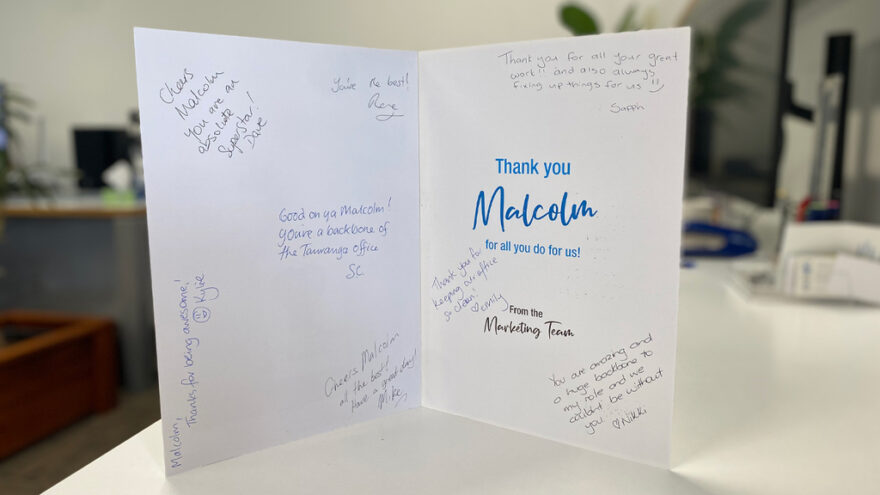 Cheers
Malcolm
You are an
absolute
Superstar!
Dave
You're the best!
Good on ya Malcolm!
You're a backbone of
the Tauranga office
SC
Malcolm,
Thanks for being awesome!
Kylie
Cheers Malcolm
all the best!
Have a great day!
Mike
Thank you for all your great
work!! and also always
fixing up things for us
Sapph
Thank you
Malcolm
for all you do for us!
Thank you for
keeping our office
so clean!
Emily
From the
Marketing Team
You are amazing and
a huge backbone to
my role and we
couldnt be without
you
Nikki